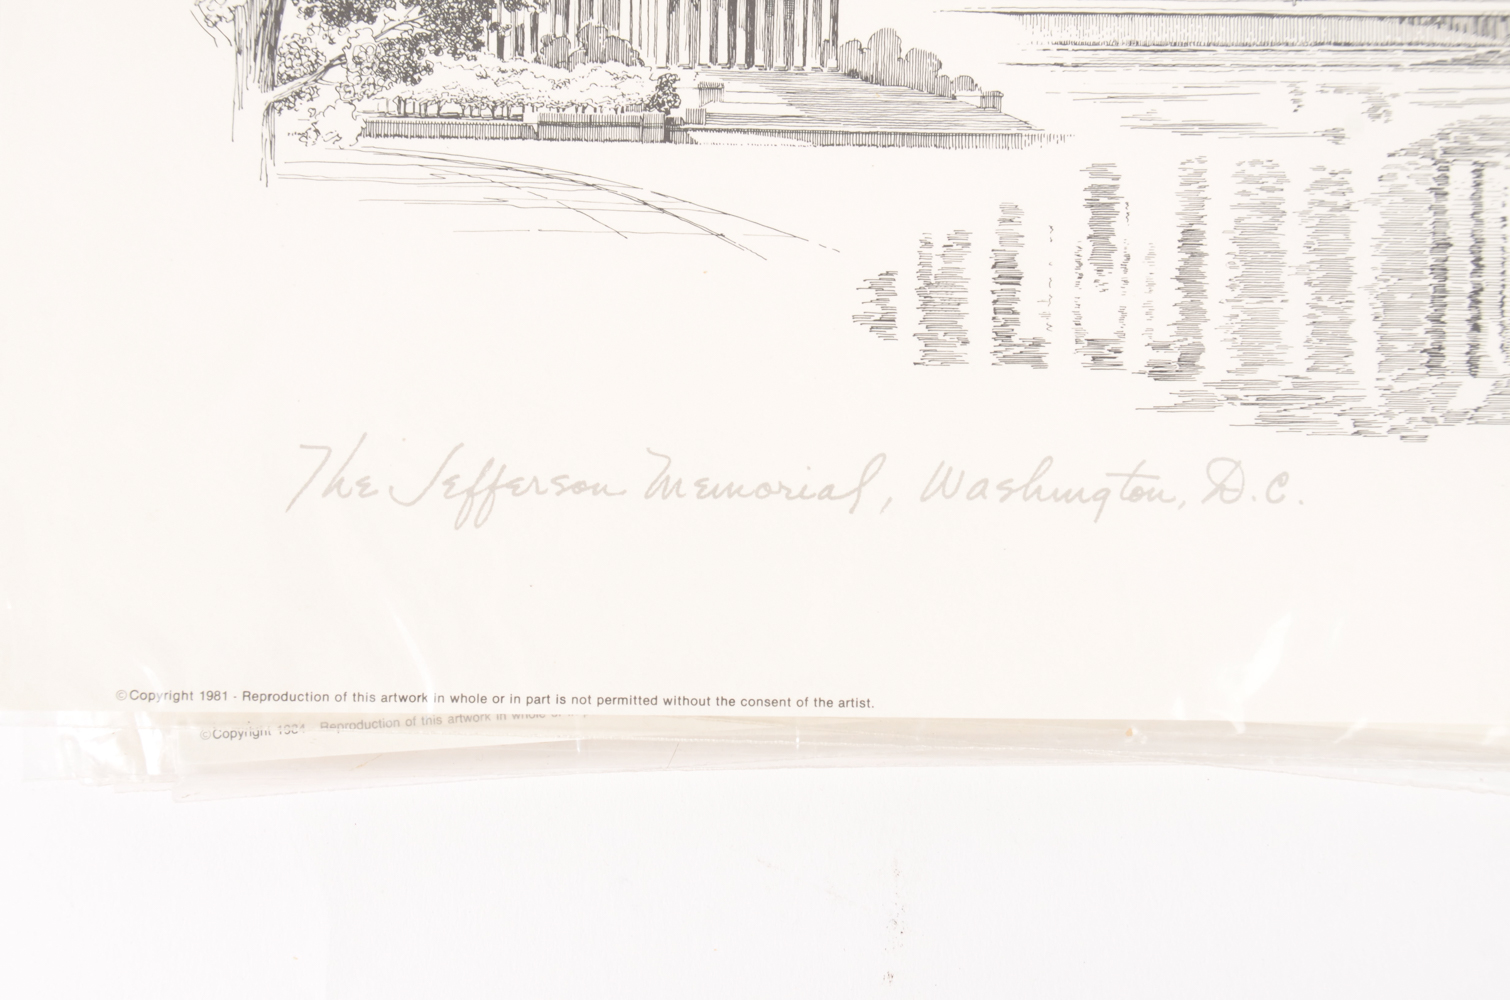 The Jefferson Memorial, Washington, D.C.
©Copyright 1981 - Reproduction of this artwork in whole or in part is not permitted without the consent of the artist.
©Copyright Reproduction of this artwork in whole